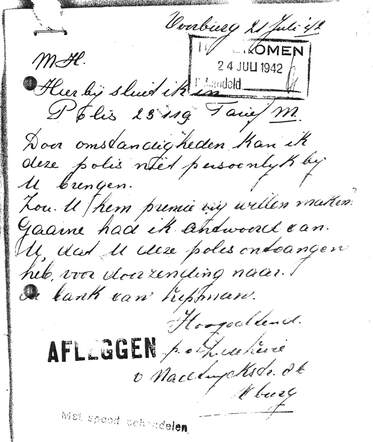 Voorburg 21 Juli '42
INGEKOMEN
24 JULI 1942
Behandeld
M.H.
Hierbij sluit ik in
Polis 23119 Tarief M.
Door omstandigheden kan ik
deze polis niet persoonlyk by
U brengen.
Zou U hem premie vrij willen maken.
Gaarne had ik antwoord van
U dat U deze polis ontvangen
heb, voor doorzending naar.
de bank van Lippman.
Hoogachtend.
AFLEGGEN
burg
Met spoed behandelen